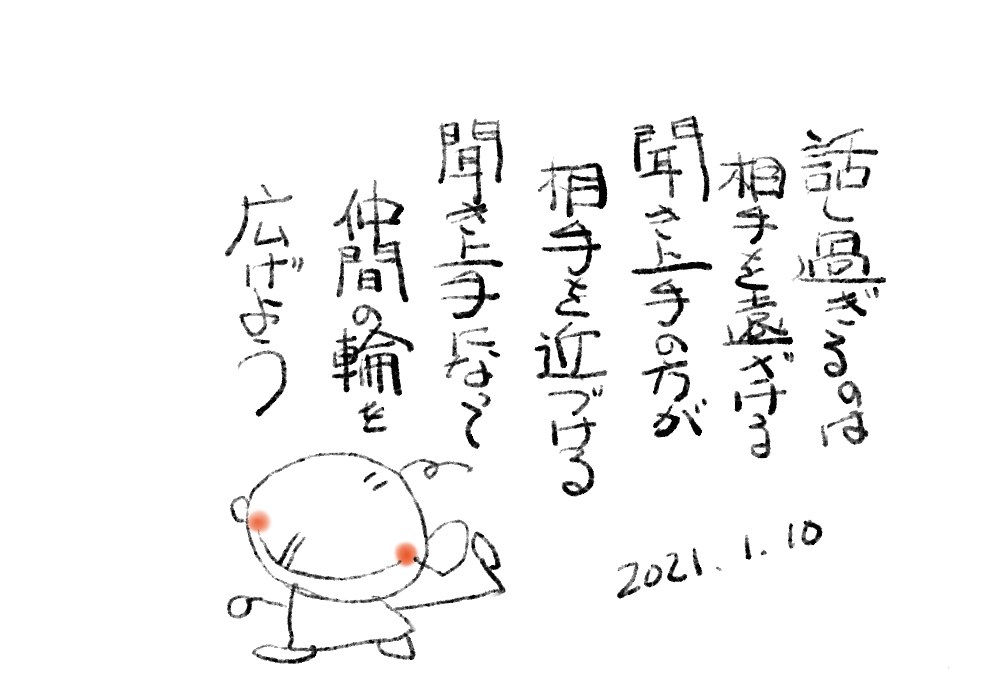 話し過ぎるのは
相手を遠ざける
聞き上手の方が
相手を近づける
聞き上手になって
仲間の輪を
広げよう
2021.1.10